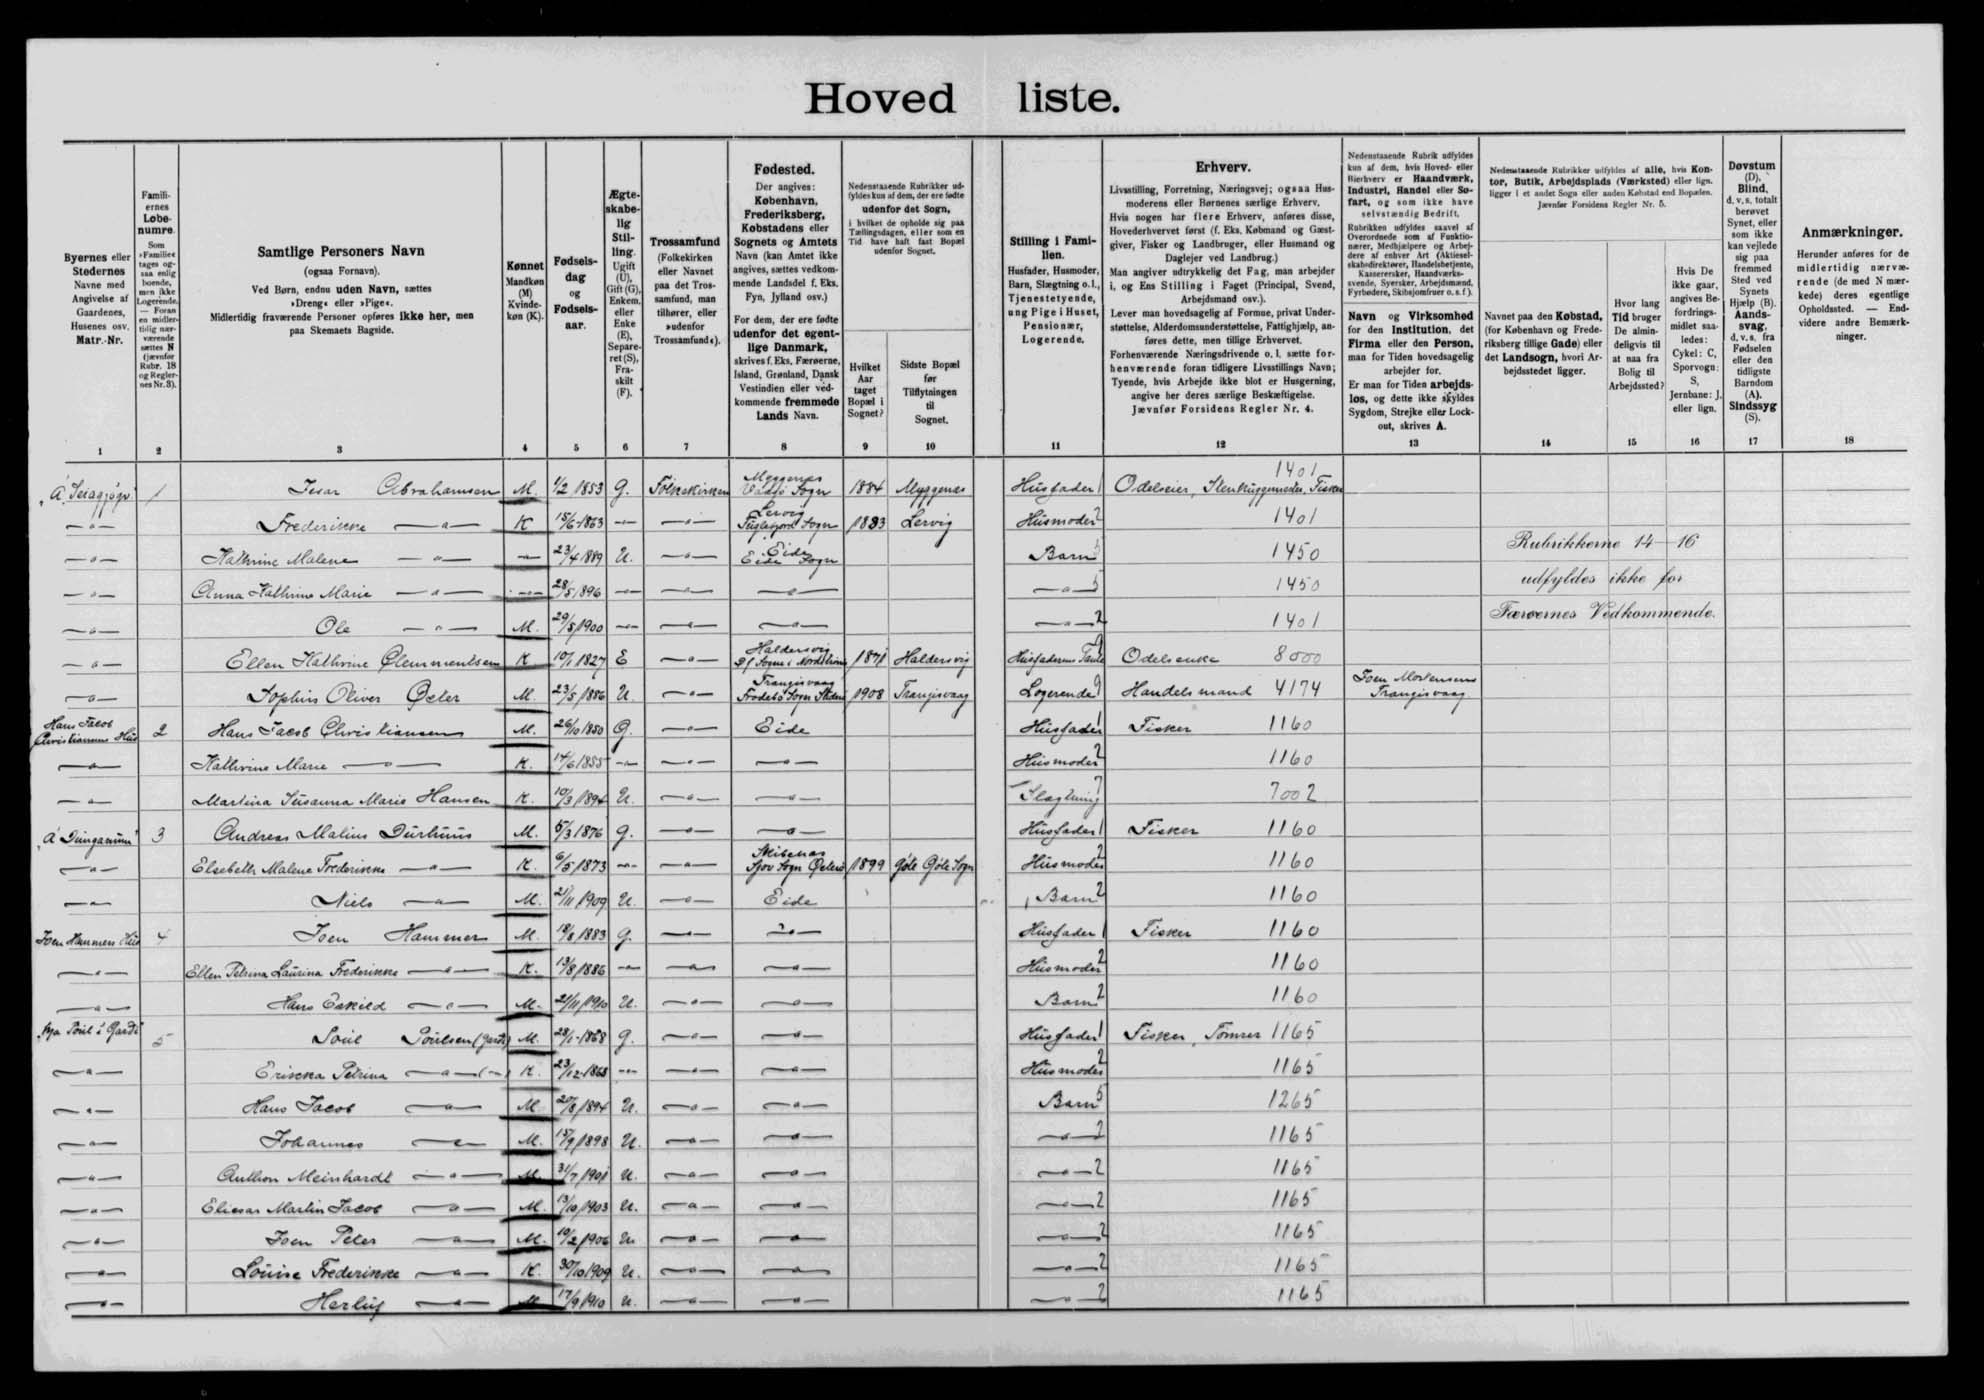 Hoved liste.
Byernes eller Stedernes Navne med Angivelse af Gaardenes, Husenes osv. Matr.-Nr.
Famili- ernes Løbe- numre. Som »Familie« tages og- saa enlig boende, men ikke Logerende. — Foran en midler- tidig nær- værende sættes N (jævnfør Rubr. 18 og Regler- nes Nr. 3).
Samtlige Personers Navn (ogsaa Fornavn). Ved Børn, endnu uden Navn, sættes »Dreng« eller »Pige«. Midlertidig fraværende Personer opføres ikke her, men paa Skemaets Bagside.
Kønnet Mandkøn (M) Kvinde- køn (K).
Fødsels- dag og Fødsels- aar.
Ægte- skabe- lig Stil- ling. Ugift (U), Gift (G), Enkem. eller Enke (E), Separe- ret (S), Fra- skilt (F).
Trossamfund (Folkekirken eller Navnet paa det Tros- samfund, man tilhører, eller »udenfor Trossamfund«).
Fødested. Der angives: København, Frederiksberg, Købstadens eller Sognets og Amtets Navn (kan Amtet ikke angives, sættes vedkom- mende Landsdel f. Eks. Fyn, Jylland osv.) For dem, der ere fødte udenfor det egent- lige Danmark, skrives f. Eks. Færøerne, Island, Grønland, Dansk Vestindien eller ved- kommende fremmede Lands Navn.
Nedenstaaende Rubrikker ud- fyldes kun af dem, der ere fødte udenfor det Sogn, i hvilket de opholde sig paa Tællingsdagen, eller som en Tid have haft fast Bopæl udenfor Sognet.
Hvilket Aar taget Bopæl i Sognet?
Sidste Bopæl før Tilflytningen til Sognet.
Stilling i Fami- lien. Husfader, Husmoder, Barn, Slægtning o. l., Tjenestetyende, ung Pige i Huset, Pensionær, Logerende.
Erhverv. Livsstilling, Forretning, Næringsvej; ogsaa Hus- moderens eller Børnenes særlige Erhverv. Hvis nogen har flere Erhverv, anføres disse, Hovederhvervet først (f. Eks. Købmand og Gæst- giver, Fisker og Landbruger, eller Husmand og Daglejer ved Landbrug.) Man angiver udtrykkelig det Fag, man arbejder i, og Ens Stilling i Faget (Principal, Svend, Arbejdsmand osv.) Lever man hovedsagelig af Formue, privat Under- støttelse, Alderdomsunderstøttelse, Fattighjælp, an- føres dette, men tillige Erhvervet. Forhenværende Næringsdrivende o. l. sætte for- henværende foran tidligere Livsstillings Navn; Tyende, hvis Arbejde ikke blot er Husgerning, angive her deres særlige Beskæftigelse. Jævnfør Forsidens Regler Nr. 4.
Nedenstaaende Rubrik udfyldes kun af dem, hvis Hoved- eller Bierhverv er Haandværk, Industri, Handel eller Sø- fart, og som ikke have selvstændig Bedrift. Rubrikken udfyldes saavel af Overordnede som af Funktio- nærer, Medhjælpere og Arbej- dere af enhver Art (Aktiesel- skabsdirektører, Handelsbetjente, Kasserersker, Haandværks- svende, Syersker, Arbejdsmænd, Fyrbødere, Skibsjomfruer o. s. f.). Navn og Virksomhed for den Institution, det Firma eller den Person, man for Tiden hovedsagelig arbejder for. Er man for Tiden arbejds- løs, og dette ikke skyldes Sygdom, Strejke eller Lock- out, skrives A.
Nedenstaaende Rubrikker udfyldes af alle, hvis Kon- tor, Butik, Arbejdsplads (Værksted) eller lign. ligger i et andet Sogn eller anden Købstad end Bopælen. Jævnfør Forsidens Regler Nr. 5.
Navnet paa den Købstad, (for København og Frede- riksberg tillige Gade) eller det Landsogn, hvori Ar- bejdsstedet ligger.
Hvor lang Tid bruger De almin- deligvis til at naa fra Bolig til Arbejdssted?
Hvis De ikke gaar, angives Be- fordrings- midlet saa- ledes: Cykel: C, Sporvogn: S, Jernbane: J, eller lign.
Døvstum (D). Blind, d. v. s. totalt berøvet Synet, eller som ikke kan vejlede sig paa fremmed Sted ved Synets Hjælp (B). Aands- svag, d. v. s. fra Fødselen eller den tidligste Barndom (A). Sindssyg (S).
Anmærkninger. Herunder anføres for de midlertidig nærvæ- rende (de med N mær- kede) deres egentlige Opholdssted. — End- videre andre Bemærk- ninger.
1 2 3 4 5 6 7 8 9 10 11 12 13 14 15 16 17 18
1 Abrahamsen M. 1/2 1853 G. Folkekirken Myggenæs Sogn 1884 Myggenæs Husfader 1 Odelseier, Fisker 1401
—〃— Frederikke —〃— K 15/6 1863 —〃— —〃— Lervig Fuglefjord Sogn 1883 Lervig Husmoder 2 1401
—〃— Kathrine Malene —〃— —〃— 23/4 1889 U. —〃— Eide Eide Sogn Barn 5 1450
—〃— Anna Kathrine Marie —〃— —〃— 28/5 1896 —〃— —〃— —〃— —〃— 5 1450
—〃— Ole —〃— M. 29/5 1900 —〃— —〃— —〃— —〃— 2 1401
Rubrikkerne 14—16
udfyldes ikke for
Færøernes Vedkommende.
—〃— Ellen Kathrine Clemmentsen K 10/1 1827 E —〃— Haldersvig 1871 Haldersvig Husfaderens Tante 9 Odelsenke 8000
—〃— Sophus Oliver Øster M. 23/5 1886 U. —〃— Trangisvaag Frodebø Sogn 1908 Trangisvaag Logerende 9 Handelsmand 4174 Joen Mortensens Trangisvaag.
Hans Jacob Christiansens Hus 2 Hans Jacob Christiansen M. 26/10 1850 G. —〃— Eide Husfader 1 Fisker 1160
—〃— Kathrine Marie —〃— K. 17/6 1855 —〃— —〃— —〃— Husmoder 2 1160
—〃— Martina Susanna Marie Hansen K. 10/3 1894 U. —〃— —〃— Slægtning 7 7002
3 Andreas Malius Durhuus M. 5/3 1876 G. —〃— —〃— Husfader 1 Fisker 1160
—〃— Elsebeth Malene Frederikke —〃— K. 6/5 1873 —〃— —〃— Sjov Sogn 1899 Gøte Gøte Sogn Husmoder 2 1160
—〃— Niels —〃— M. 21/11 1909 U. —〃— Eide Barn 2 1160
Joen Hammers Hus 4 Joen Hammer M. 18/8 1883 G. —〃— —〃— Husfader 1 Fisker 1160
—〃— Ellen Petrina Laurina Frederikke —〃— K. 13/8 1886 —〃— —〃— —〃— Husmoder 2 1160
—〃— Hans Eskild —〃— M. 21/11 1910 U. —〃— —〃— Barn 2 1160
5 Poul Poulsen M. 28/1 1868 G. —〃— —〃— Husfader 1 Fisker, Tømrer 1165
—〃— Erikka Petrina —〃— K. 23/12 1868 —〃— —〃— —〃— Husmoder 2 1165
—〃— Hans Jacob —〃— M. 20/8 1894 U. —〃— —〃— Barn 5 1265
—〃— Johannes —〃— M. 15/9 1898 U. —〃— —〃— —〃— 2 1165
—〃— Anthon Meinhardt —〃— M. 31/7 1901 U. —〃— —〃— —〃— 2 1165
—〃— Eliesar Martin Jacob —〃— M. 13/10 1903 U. —〃— —〃— —〃— 2 1165
—〃— Joen Peter —〃— M. 10/2 1906 U. —〃— —〃— —〃— 2 1165
—〃— Louise Frederikke —〃— K. 30/10 1909 U. —〃— —〃— —〃— 2 1165
—〃— Herluf —〃— M. 17/9 1910 U. —〃— —〃— —〃— 2 1165